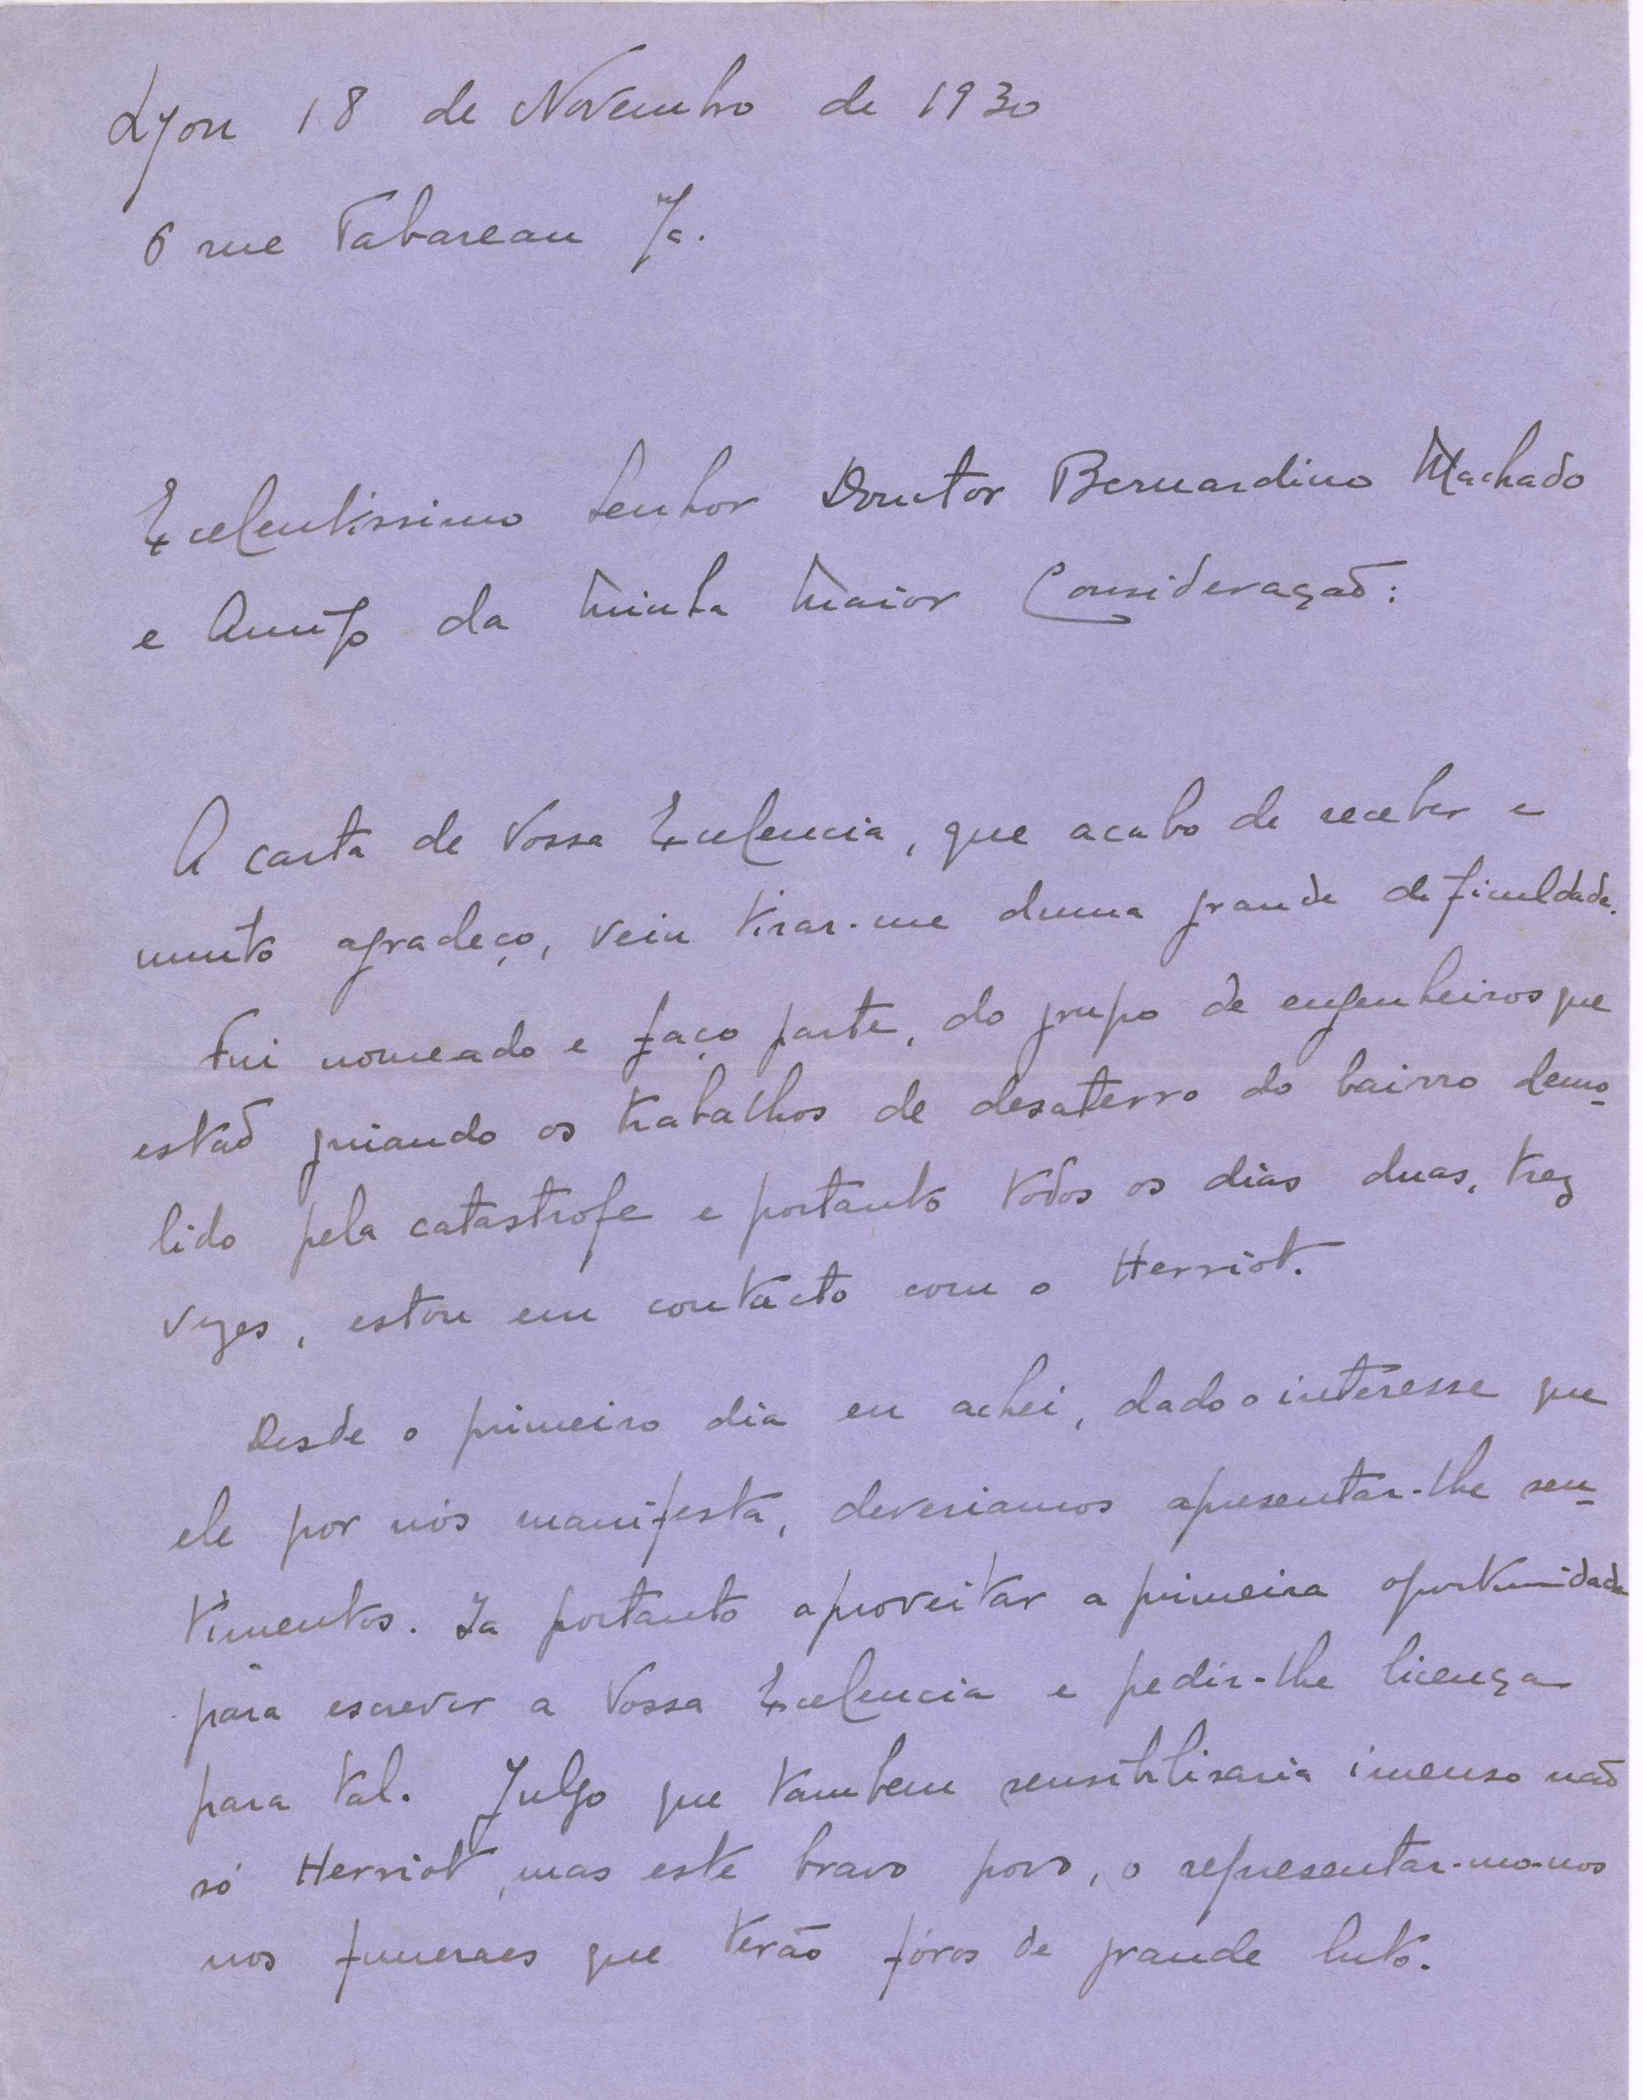 Lyon 18 de Novembro de 1930
6 rue Tabareau
Excelentissimo Senhor Doutor Bernardino Machado
e Amigo da Minha Maior Consideração:
A carta de Vossa Excelencia, que acabo de receber e
muito agradeço, veiu tirar-me duma grande dificuldade.
Fui nomeado e faço parte, do grupo de engenheiros que
estão guiando os trabalhos de desaterro do bairro demo-
lido pela catastrofe e portanto todos os dias duas, trez
vezes, estou em contacto com o Herriot.
Desde o primeiro dia eu achei, dado o interesse que
ele por nós manifesta, deveriamos apresentar-lhe sen-
timentos. Ia portanto aproveitar a primeira oportunidade
para escrever a Vossa Excelencia e pedir-lhe licença
para tal. Julgo que tambem sensibilisaria imenso não
só Herriot, mas este bravo povo, o representar-mo-nos
nos funeraes que terão fóros de grande luto.